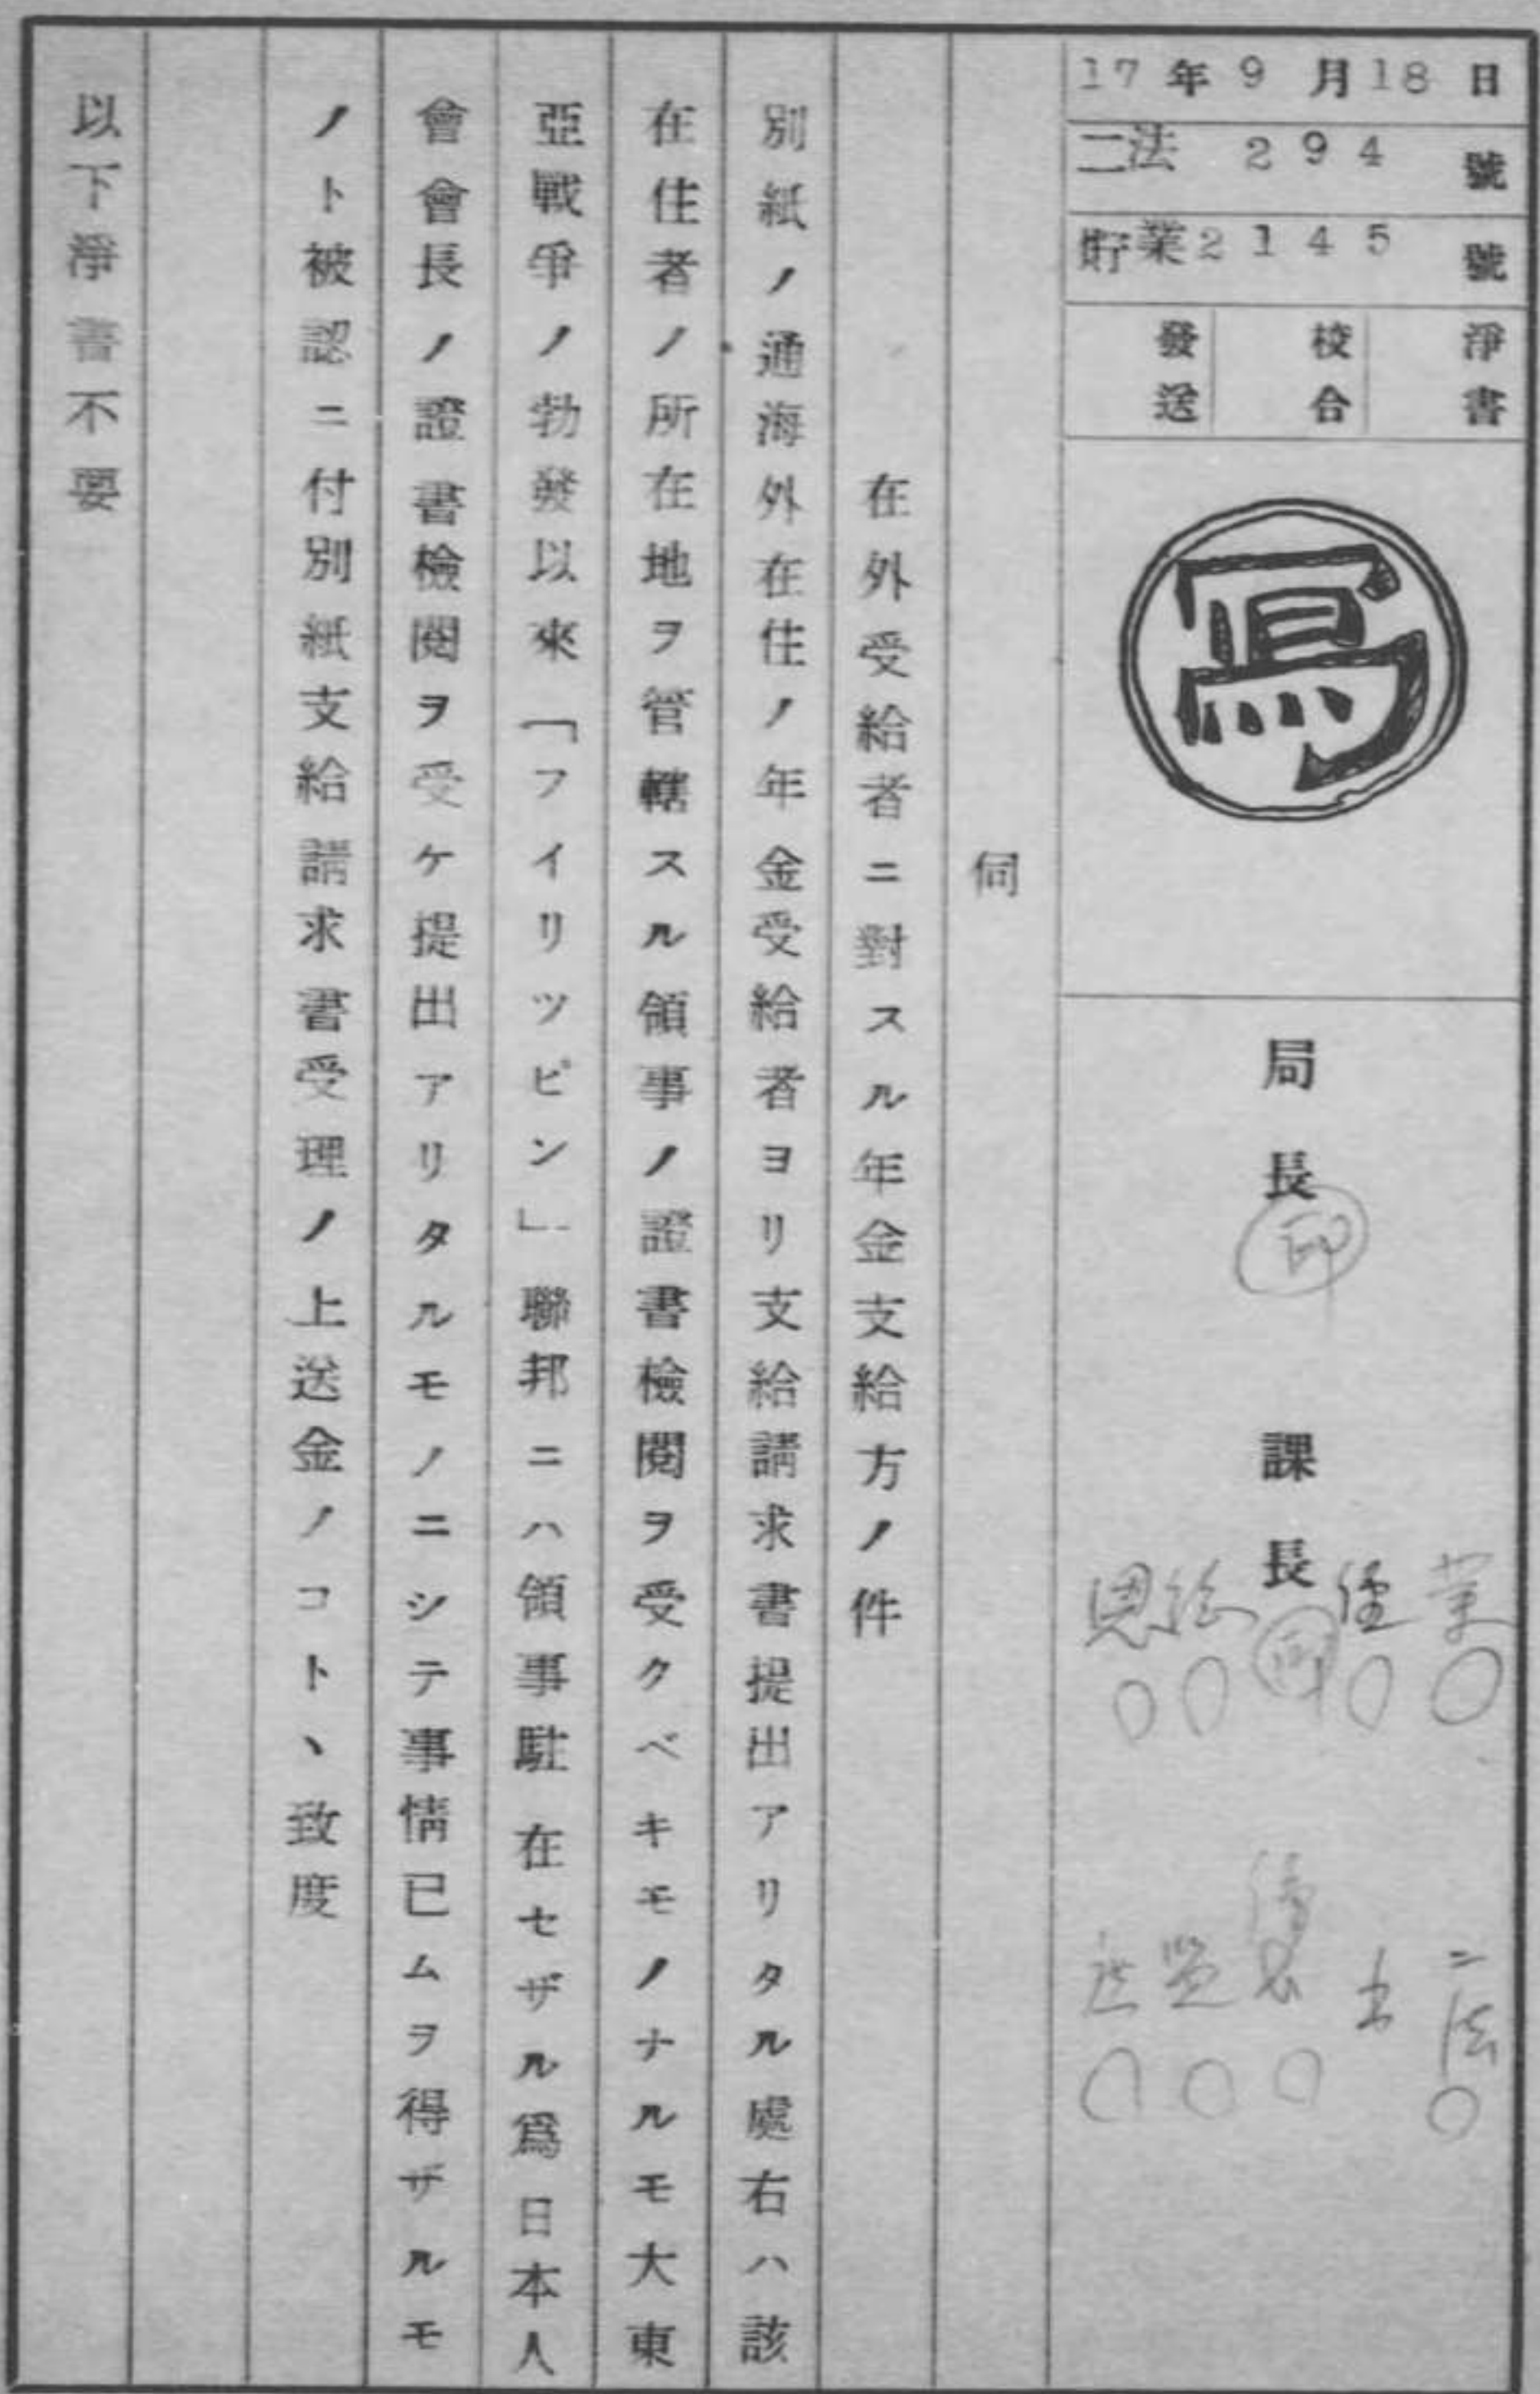 17年9月18日
二法 294 號
貯業2145 號
淨書
校合
發送
寫
局長 印
課長 印
業
恩給
二法
伺
在外受給者ニ對スル年金支給方ノ件
別紙ノ通海外在住ノ年金受給者ヨリ支給請求書提出アリタル處右ハ該
在住者ノ所在地ヲ管轄スル領事ノ證書檢閱ヲ受クベキモノナルモ大東
亞戰爭ノ勃發以來「フイリツピン」聯邦ニハ領事駐在セザル爲日本人
會會長ノ證書檢閱ヲ受ケ提出アリタルモノニシテ事情已ムヲ得ザルモ
ノト被認ニ付別紙支給請求書受理ノ上送金ノコトヽ致度
以下淨書不要